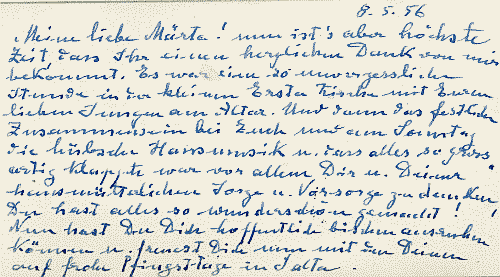 8. 5. 56
Meine liebe Märta! nun ist's aber höchste
Zeit, dass Ihr einen herzlichen Dank von mir
bekommt. Es war eine so unvergessliche
Stunde in der kleinen Ersta Kirche mit Euren
lieben Jungen am Altar. Und dann das festliche
Zusammensein bei Euch und am Sonntag
die hübsche Hausmusik u. dass alles so gross-
artig klappte war vor allem Dir u. Deiner
hausmütterlichen Sorge u. Vorsorge zu danken
Du hast alles so wunderschön gemacht!
Nun hast Du Dich hoffentlich bisschen ausruhen
können u. freust Dich nun mit den Deinen
auf frohe Pfingsttage in